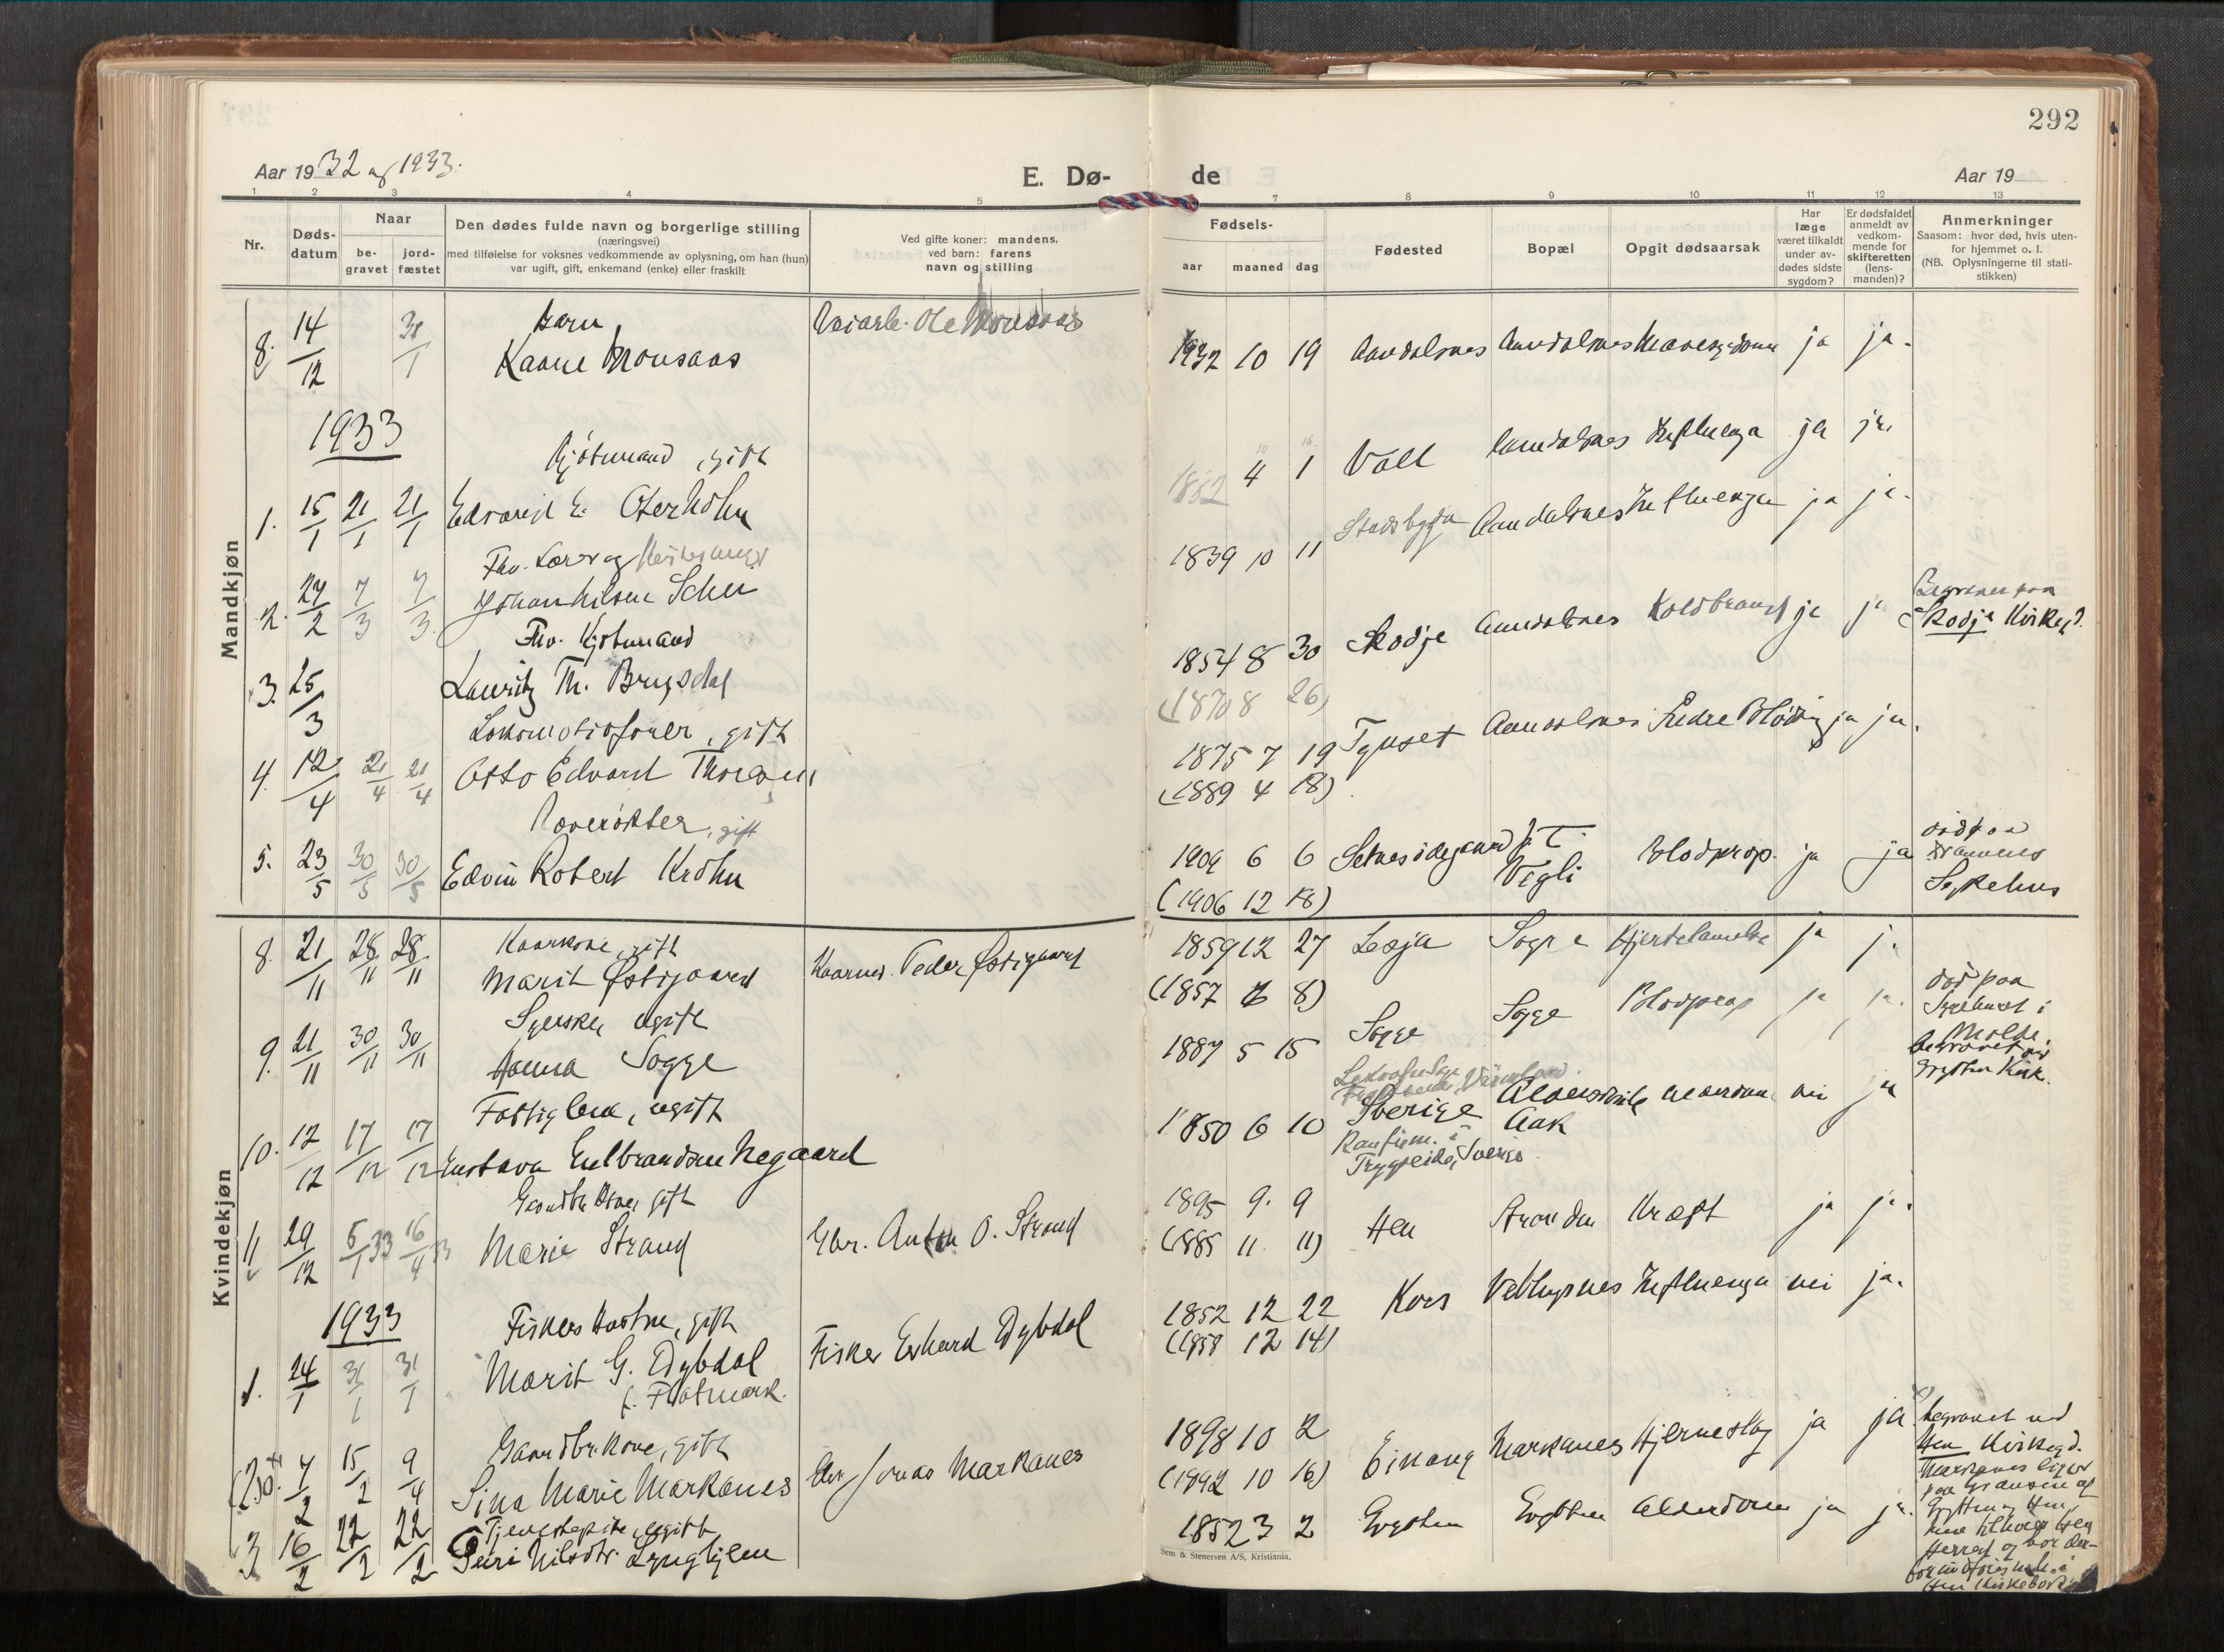 292
Aar 1932 og 1933.
E. Dø-
de
Aar 19
1 2 3 4 5 7 8 9 10 11 12 13
Nr.
Døds-
datum
Naar
be-
gravet
jord-
fæstet
Den dødes fulde navn og borgerlige stilling
(næringsvei)
med tilføielse for voksnes vedkommende av oplysning, om han (hun)
var ugift, gift, enkemand (enke) eller fraskilt
Ved gifte koner: mandens,
ved barn: farens
navn og stilling
Fødsels-
aar maaned dag
Fødested
Bopæl
Opgit dødsaarsak
Har
læge
været tilkaldt
under av-
dødes sidste
sygdom?
Er dødsfaldet
anmeldt av
vedkom-
mende for
skifteretten
(lens-
manden)?
Anmerkninger
Saasom: hvor død, hvis uten-
for hjemmet o. l.
(NB. Oplysningerne til stati-
stikken)
Mandkjøn
8. 14/12 31/1 Barn
Kaare Monsaas Ole Monsaas 1932 10 19 Aandalsnes Aandalsnes ja ja.
1933
Kjøbmand, gift
1. 15/1 21/1 21/1 Edvard E. Oterholm 1852 4 1 Voll Aandalsnes Influenza ja ja.
Fhv. Lærer og
2. 27/2 7/3 7/3 Johan Nilsen Schei 1839 10 11 Stadsbygda Aandalsnes Influenza ja ja.
Fhv. Kjøbmand
3. 25/3 Lauritz Th. Brusdal 1854 8 30 Skodje Aandalsnes Koldbrand ja ja Begraven paa
Skodje Kirkeg.
(1870 8 26)
Lokomotivfører, gift
4. 12/4 21/4 21/4 Otto Edvard Thoresen 1875 7 19 Tynset Aandalsnes Indre Blødning ja ja.
(1889 4 18)
Røverøkter, gift
5. 23/5 30/5 30/5 Edvin Robert Krohn 1909 6 6 Vegli Blodprop. ja ja død paa
Sykehus
(1906 12 18)
Kvindekjøn
8. 21/11 28/11 28/11 Kaarkone, gift
Marit Østigaard Kaarmd. Peder Østigaard 1859 12 27 Lesja Sogge Hjertelammelse ja ja
(1857 7 8)
Syerske, ugift
9. 21/11 30/11 30/11 Hanna Sogge 1887 5 15 Sogge Sogge Blodprop ja ja. død paa
Sykehuset i
Molde.
Begravet ved
Grytten Kirk.
Fattiglem, ugift
10. 12/12 17/12 17/12 Gustava Gulbrandsen Negaard 1850 6 10 Sverige Aak Alderdom nei ja
Gaardbr. kone, gift
11 29/12 5/1 33 16/4 33 Marie Strand Gbr. Anton O. Strand 1895 9. 9 Hen Stranden Kræft ja ja.
(1885 11 11)
1933
Fiskers hustru, gift
1. 24/1 31/1 31/1 Marit G. Dybdal Fisker Erhard Dybdal 1852 12 22 Kors Veblungsnes Influenza nei ja.
f. Flatmark.
(1858 12 14)
Gaardbr. kone, gift
2. 7/2 15/2 9/4 Sina Marie Markanes Gbr Jonas Markanes 1898 10 2 Einang Markanes Hjerneslag ja ja begravet ved
Hen Kirkegd.
Markanes ligger
paa Grænsen af
Grytten og Hen
(1892 10 16)
Tjenestepike, ugift
3 16/2 22/2 22/2 Guri Nilsdtr. Lyngheim 1852 3 2 Grytten Grytten Alderdom ja ja.
Hen Kirkebok
Sem & Stenersen A/S, Kristiania.